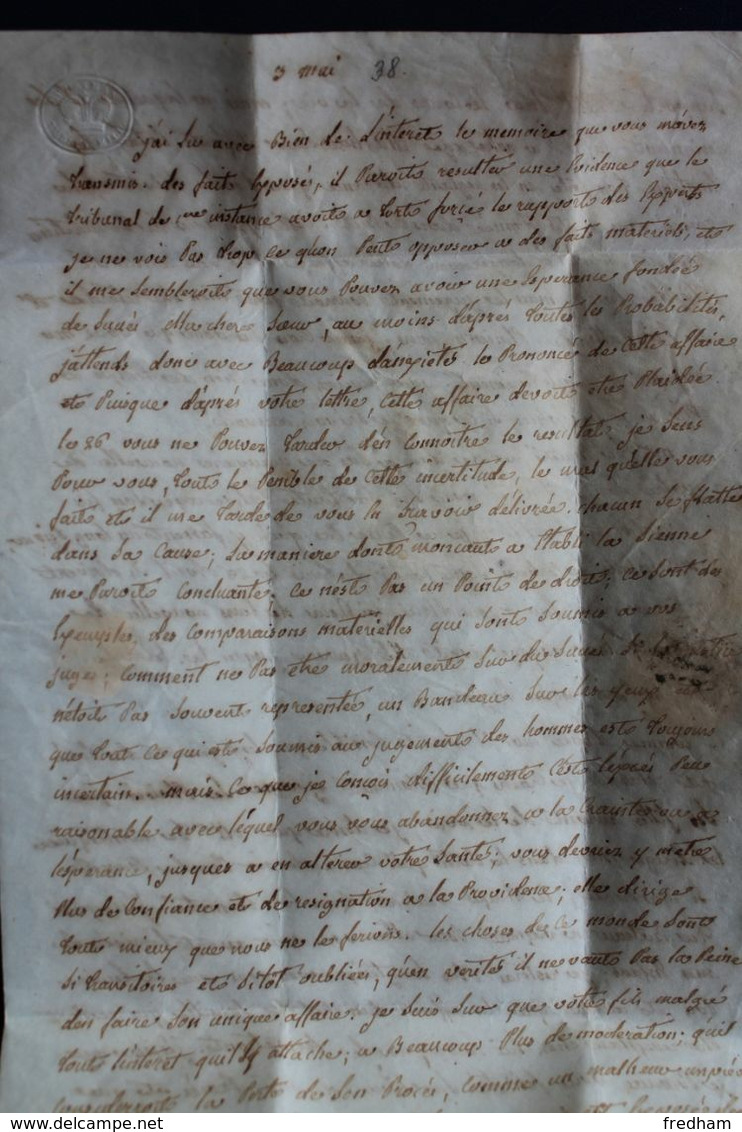 3 mai 38.
j'ai lu avec Bien de l'interet le memoire que vous m'avez
transmis. des faits Exposés, il Paroit resulter une Evidence que le
tribunal de 1ere instance avoit a tort forcé le rapport des Experts
je ne vois Pas trop ce qu'on Peut opposer a des faits materiels, et
il me sembleroit que vous Pouvez avoir une Esperance fondée
de succès ma chere Sœur, au moins d'après toutes les Probabilités,
j'attends donc avec Beaucoup d'anxieté le Prononcé de cette affaire
et Puisque d'après votre lettre, cette affaire devoit etre Plaidée
le 26 vous ne Pouvez tarder d'en connoitre le resultat. je sens
Pour vous, tout le Penible de cette incertitude, le mal qu'elle vous
fait et il me tarde de vous en savoir délivrée. chacun se flatte
dans sa cause; la maniere dont moncaut a Etabli la sienne
me Paroit concluante. ce n'est Pas un Point de droit; ce sont des
des comparaisons materielles qui sont soumis a vos
juges; comment ne Pas etre moralement sur du succès
n'etoit Pas souvent representée, un Bandeau sur les yeux et
que tout ce qui est soumis au jugement des hommes est toujours
incertain. mais ce que je conçois difficilement c'est l'excés Peu
raisonable avec lequel vous vous abandonnez a la Crainte ou a
l'esperance, jusques a en alterer votre santé; vous devriez y metre
Plus de Confiance et de resignation a la Providence; elle dirige
tout mieux que nous ne le ferions. les choses de ce monde sont
si transitoires et sitot oubliées, qu'en verité il ne vaut Pas la Peine
d'en faire son unique affaire. je suis sur que votre fils malgré
tout l'interet qu'il y attache, a Beaucoup Plus de moderation; qu'il
considereroit la Perte de son Procès, comme un malheur
fredham